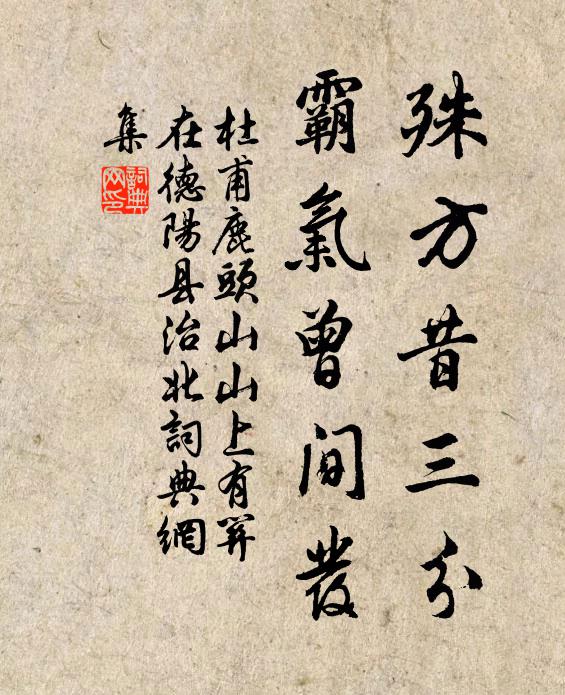 殊方昔三分
霸氣曾間發
杜甫鹿頭山山上有關
在德陽县治北詞典網
集
詞典网印